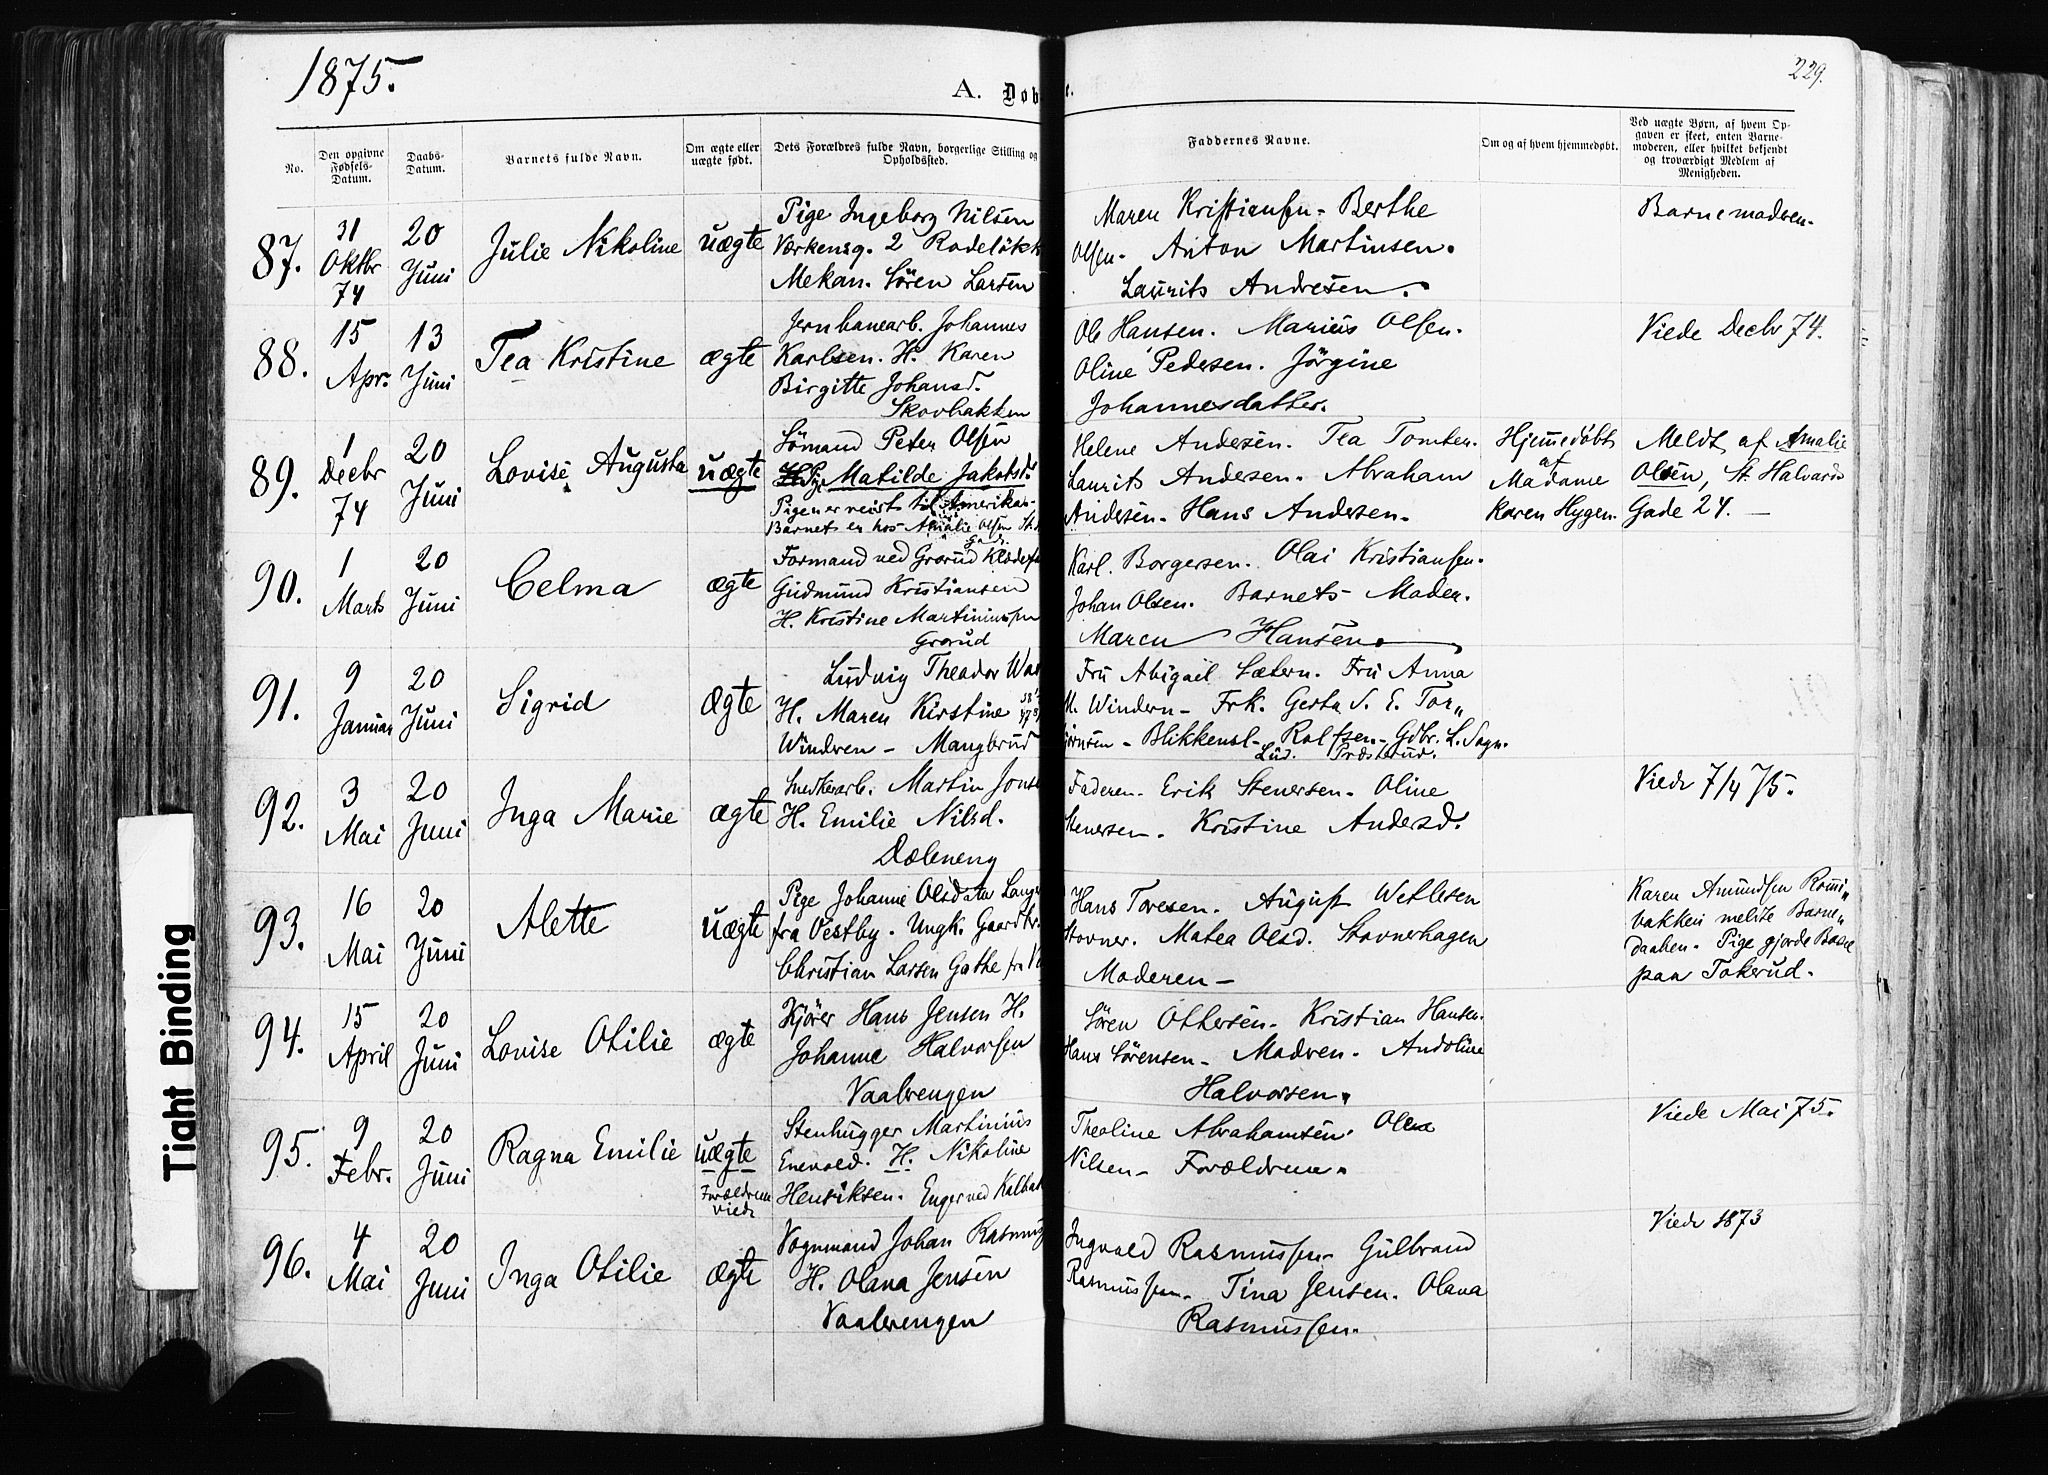 1875.
A. Døb
e.
229.
No.
Den opgivne Fødsels-Datum.
Daabs-Datum.
Barnets fulde Navn.
Om ægte eller uægte født.
Dets Forældres fulde Navn, borgerlige Stilling og Opholdssted.
Faddernes Navne.
Om og af hvem hjemmedøbt.
Ved uægte Børn, af hvem Op-
gaven er skeet, enten Barne-
moderen, eller hvilket bekjendt
og troværdigt Medlem af
Menigheden.
87. 31 Oktbr 74
20 Juni
Julie Nikoline
uægte
Pige Ingeborg Nilsen
Værkensg. 2 Rodeløkk
Mekan. Sören Larsen
Maren Kristiansen - Berthe
Olsen - Anton Martinsen.
Laurits Andresen.
Barnemadren.
88. 15 Apr.
13 Juni
Tea Kristine
ægte
Jernbanearb. Johannes
Karlsen. H. Karen
Birgitte Johansd.
Skovbakken
Ole Hansen. Marius Olsen.
Oline Pedersen. Jörgine
Johannesdatter.
Viede Decbr 74.
89. 1 Decbr 74
20 Juni
Lovise Augusta
uægte
Sömand Peter Olsen
Pige Matilde Jakobsd.
Pigen er reist til Amerika-
Barnet er hos Amalie Olsen St.
Gade.
Helene Andesen. Tea Tomter.
Laurits Andersen. Abraham
Andesen. Hans Andersen.
Hjemmedøbt
af
Madame
Karen Hygen.
Meldt af Amalie
Olsen, St. Halvards
Gade 24. —
90. 1 Marts
20 Juni
Celma
ægte
Formand ved Grorud Klædefa
Gudmund Kristiansen
H. Kristine Martiniussen
Grorud
Karl. Borgersen. Olai Kristiansen.
Johan Olsen. Barnets Moder.
Maren Hansen.
91. 9 Januar
20 Juni
Sigrid
Ægte
Ludvig Theador Wa
H. Maren Kirstine
Windren - Mangbrud
Fru Abigail Sætern. Fru Anna
M. Windern - Frk. Gerta S. E. Tor„
jörnsen - Blikkensl. Rolfsen - Gdbr. L. Sogn.
Lud. Præsterud.
92. 3 Mai
20 Juni
Inga Marie
ægte
Snedkerarb. Martin Jons
H. Emilie Nilsd.
Dæleneng
Faderen. Erik Stenersen. Oline
Stenersen. Kristine Andersd.
Viede 7/4 75.
93. 16 Mai
20 Juni
Alette
uægte
Pige Johanne Olsdatter Lange
fra Vestby. Ungk. Gaardbr.
Christian Larsen Gathe fra V
Hans Toresen. August Wetlesen
Stovner. Matea Olsd. Stovnerhagen
Moderen -
Karen Amundsen Romi„
bakken meldte Barne„
daaben. Pige gjorde Bane
paa Tokerud.
94. 15 April
20 Juni
Lovise Otilie
ægte
Kjörer Hans Jensen H.
Johanne Halvorsen
Vaalerengen
Sören Ottersen. Kristian Hansen.
Hans Sörensen. Madren. Andoline
Halvorsen.
95. 9 Febr.
20 Juni
Ragna Emilie
uægte
Forældrene
viede
Stenhugger Martinius
Enevold. H. Nikoline
Henriksen. Enger ved Kalbak
Theoline Abrahamsen. Olea
Nilsen - Forældrene.
Viede Mai 75.
96. 4 Mai
20 Juni
Inga Otilie
ægte
Vognmand Johan Rasmus
H. Olava Jensen
Vaalerengen
Ingvald Rasmussen. Gulbrand
Rasmussen. Tina Jensen. Olava
Rasmussen.
Viede 1873
Tight Binding